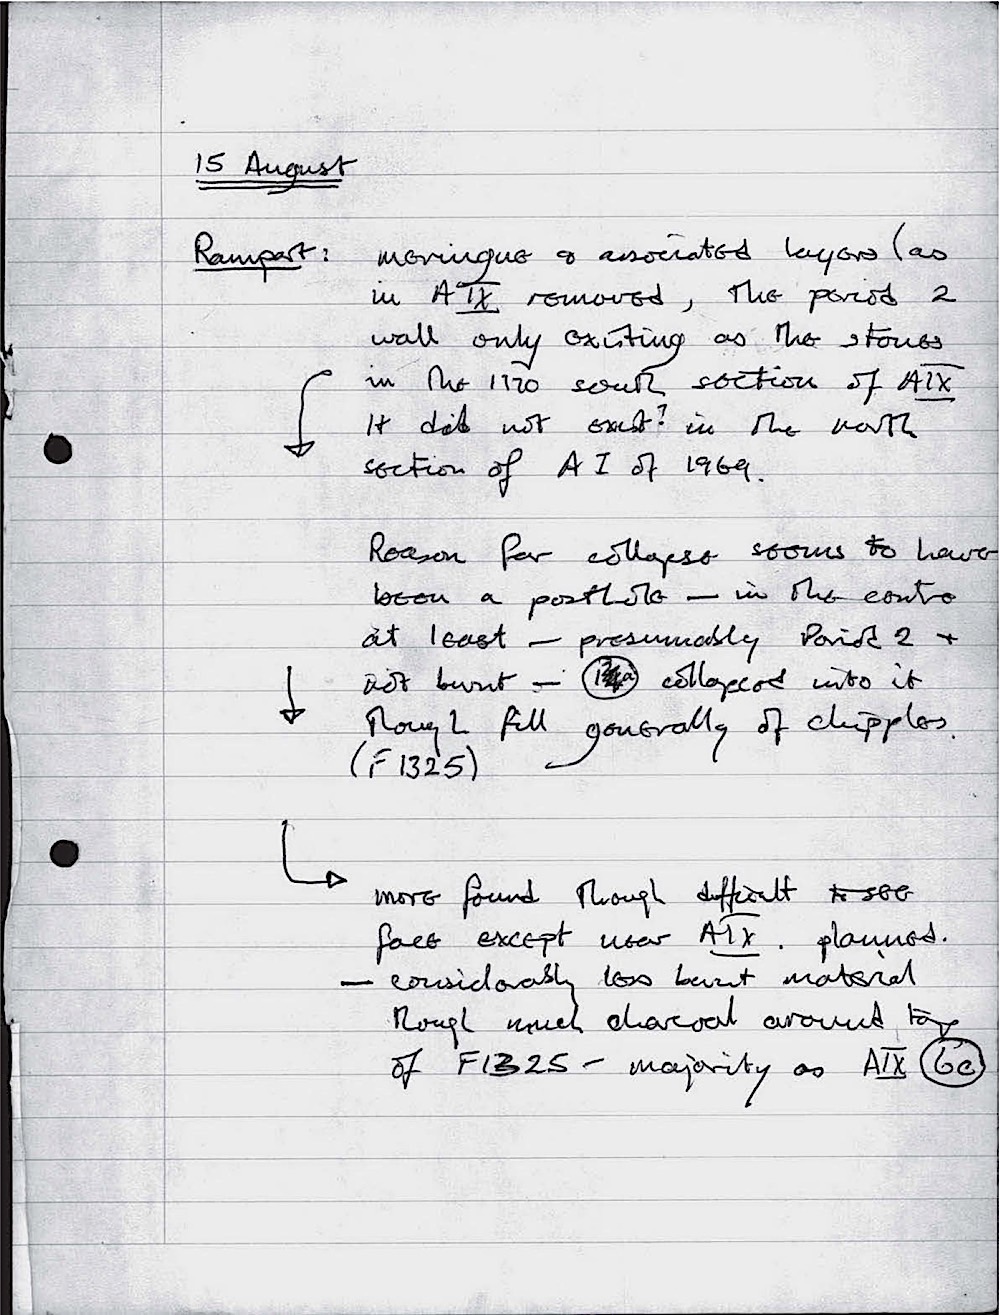 15 August
Rampart: meringue & associated layers (as
in A IX removed, The period 2
wall only existing as the stones
in the 1970 south section of A IX
It did not exist? in the north
section of A I of 1969.
Reason for collapse seems to have
been a posthole – in the centre
at least – presumably Period 2 +
not burnt – collapsed into it
Though fill generally of chipples.
(F1325)
more found though difficult to see
face except near A IX . planned.
– considerably less burnt material
though much charcoal around top
of F1325 – majority as A IX 6c